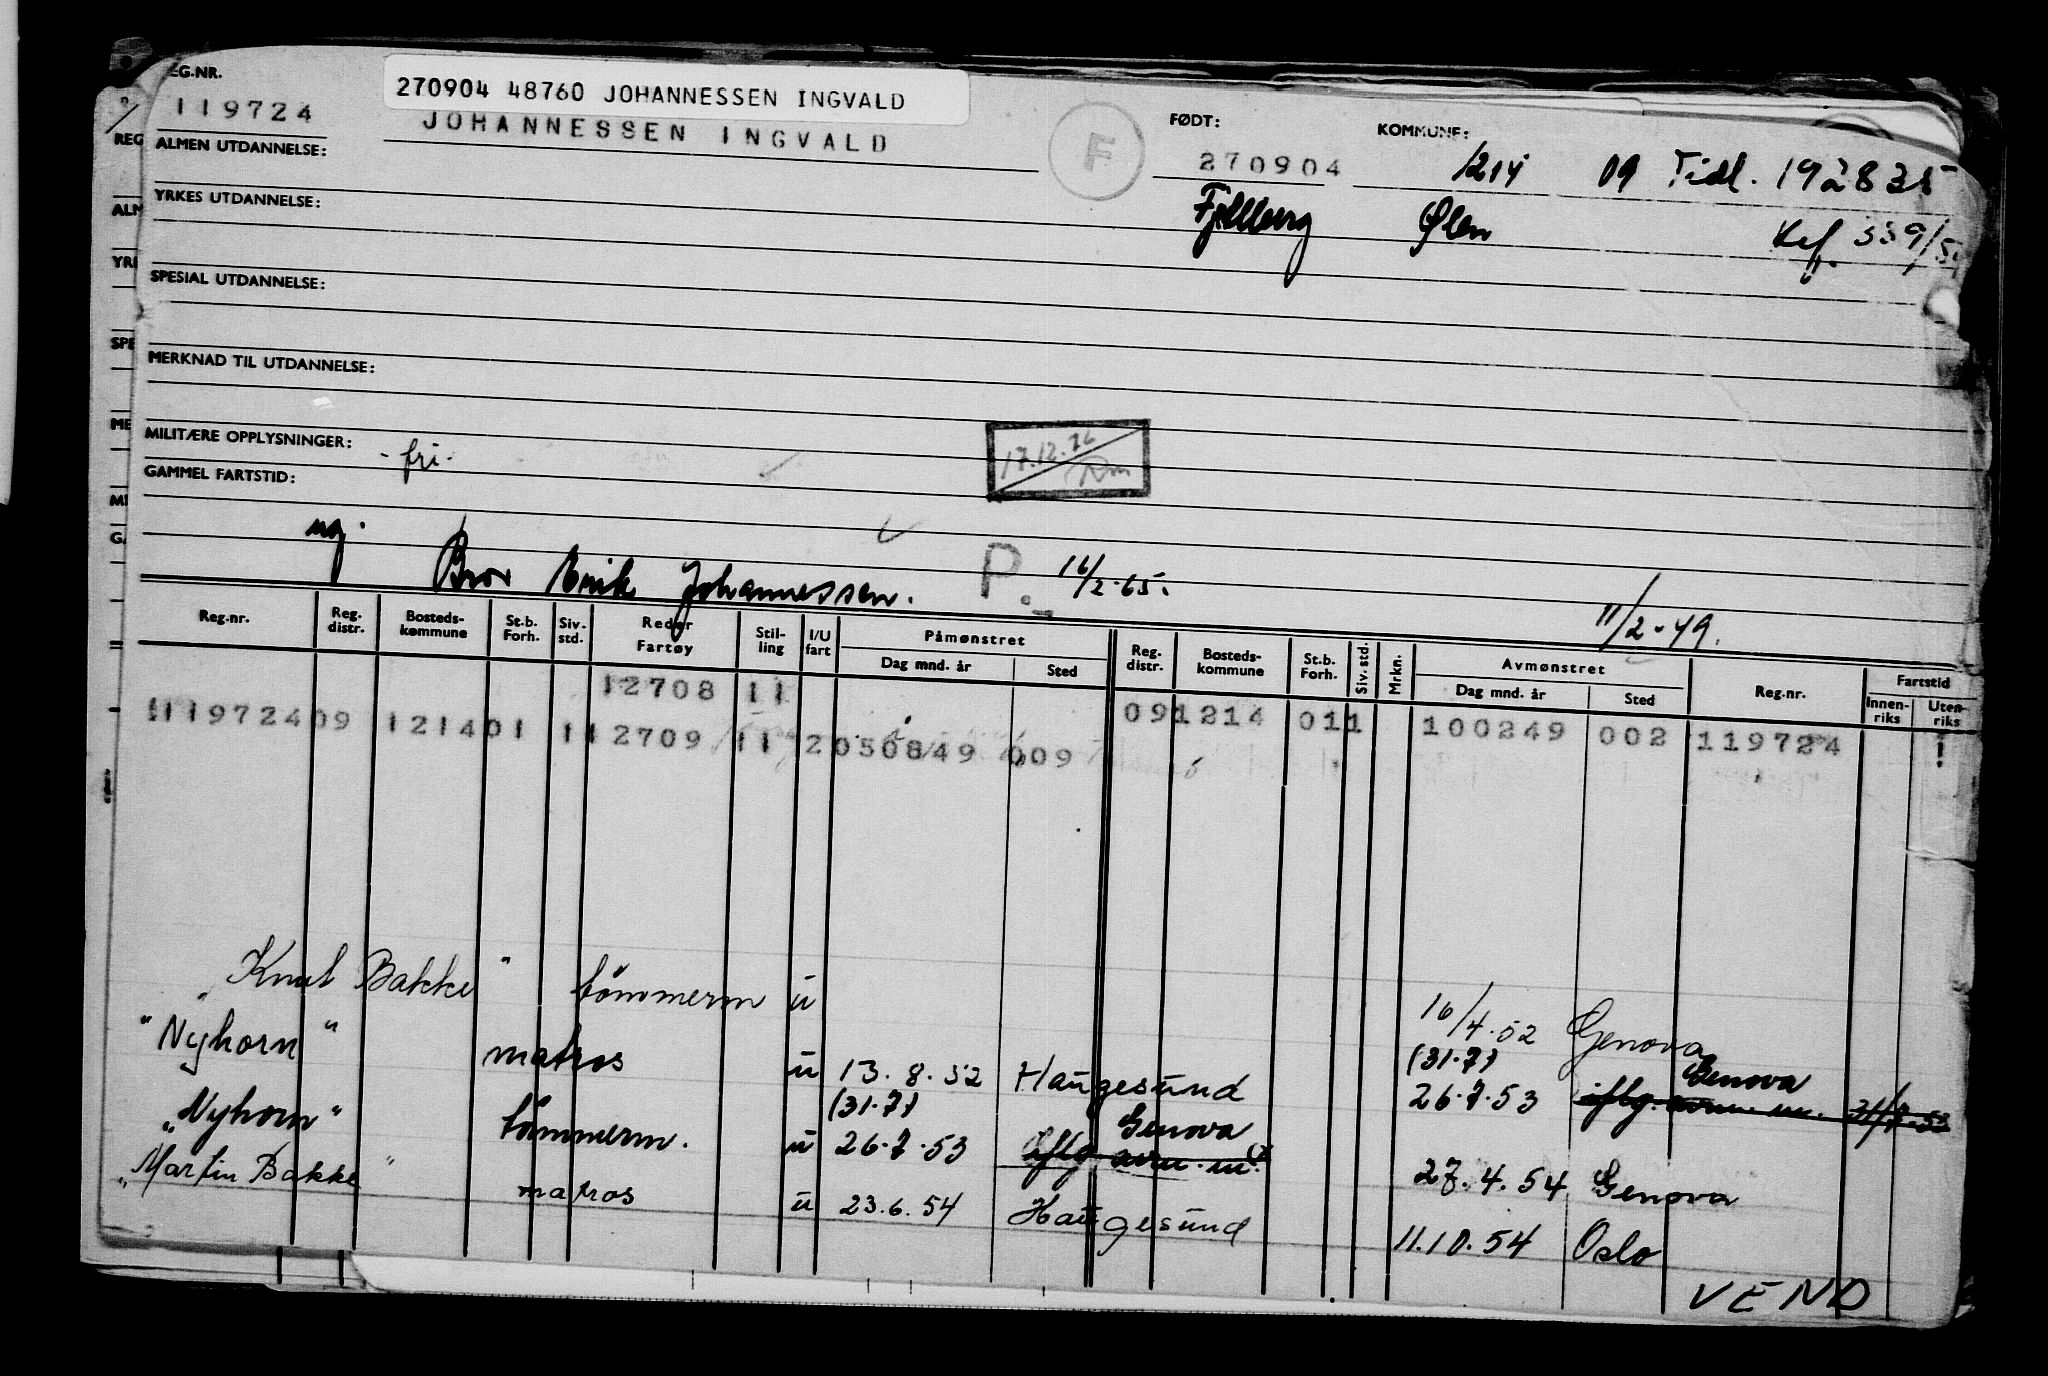 REG.NR.
270904 48760 JOHANNESSEN INGVALD
119724 JOHANNESSEN INGVALD
F
FØDT: KOMMUNE:
270904 1214 09 Tidl. 192835
Fjellberg Ølen
339/54
ALMEN UTDANNELSE:
YRKES UTDANNELSE:
SPESIAL UTDANNELSE:
MERKNAD TIL UTDANNELSE:
MILITÆRE OPPLYSNINGER: -fri-
17.12.76
GAMMEL FARTSTID:
ug. Bror Erik Johannessen. P. 16/2-65.
11/2-49.
Reg.nr. Reg. distr. Bosteds-kommune St.b. Forh. Siv. std. Reder Fartøy Stil-ling I/U fart Påmønstret Dag mnd. år Sted Reg. distr. Bosteds-kommune St.b. Forh. Siv. std. Mrkn. Avmønstret Dag mnd. år Sted Reg.nr. Fartstid Innen-riks Uten-riks
12708 11 09 1214 01 1 100249 002 119724
119724 09 1214 01 1 12709 11 2 050849 009
Knut Bakke " tömmerm u 16/4.52 Genova
"Nyhorn" matros u 13.8.52 Haugesund (31.7) 26.7.53 Genova
"Nyhorn" tömmerm. u (31.7) 26.7.53 Genova 27.4.54 Genova
"Martin Bakke" matros u 23.6.54 Haugesund 11.10.54 Oslo
VEND